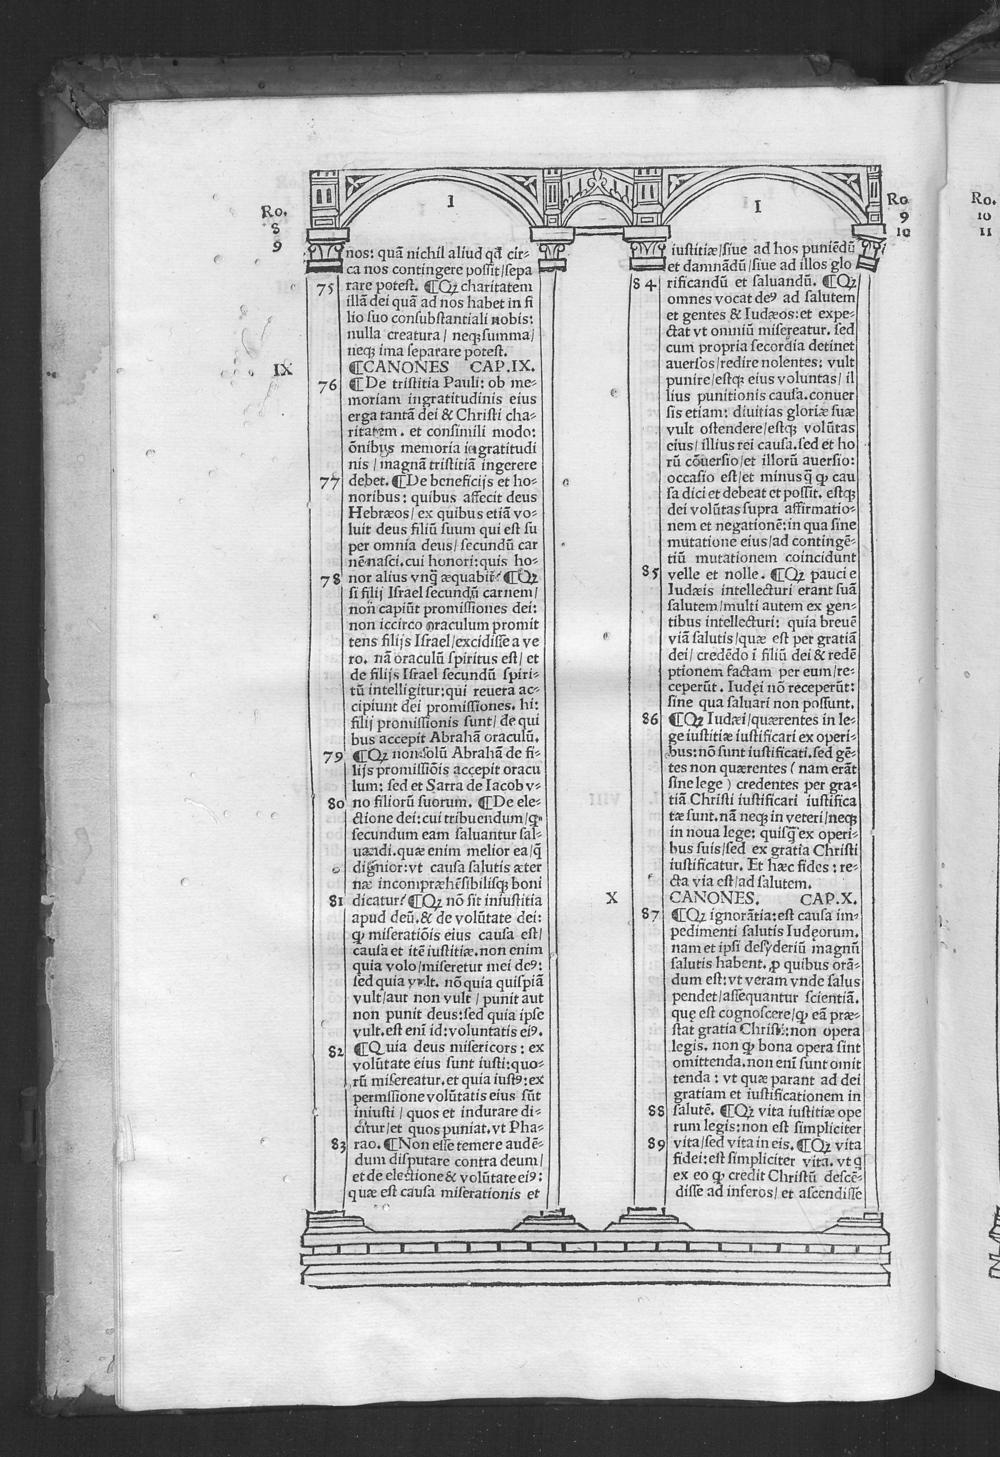 I
Ro.
8
9
nos: quã nichil aliud qđ cir-
ca nos contingere possit/sepa
75 rare potest. ¶Qꝫ charitatem
illã dei quã ad nos habet in fi
lio suo consubstantiali nobis:
nulla creatura/ neqꝫ summa/
neqꝫ ima separare potest.
IX ¶CANONES CAP.IX.
76 ¶De tristitia Pauli: ob me-
moriam ingratitudinis eius
erga tantã dei & Christi cha-
ritatem. et consimili modo:
õnibus memoria ingratitudi
nis / magnã tristitiã ingerere
77 debet. ¶De beneficijs et ho-
noribus: quibus affecit deus
Hebræos/ ex quibus etiã vo-
luit deus filiũ suum qui est su
per omnia deus/ secundũ car
nẽ nasci. cui honori: quis ho-
78 nor alius vnq̃ æquabit̃? ¶Qꝫ
si filij Israel secundũ carnem/
non capiũt promissiones dei:
non iccirco oraculum promit
tens filijs Israel/excidisse a ve
ro. nã oraculũ spiritus est/ et
de filijs Israel secundũ spiri-
tũ intelligitur: qui reuera ac-
cipiunt dei promissiones. hi:
filij promissionis sunt/ de qui
bus accepit Abrahã oraculũ.
79 ¶Qꝫ non solũ Abrahã de fi-
lijs promissiõis accepit oracu
lum: sed et Sarra de Iacob v-
80 no filiorũ suorum. ¶De ele-
ctione dei: cui tribuendum/ꝙ
secundum eam saluantur sal-
uandi. quæ enim melior ea/q̃
dignior: vt causa salutis æter
næ incompræhẽsibilisqꝫ boni
81 dicatur? ¶Qꝫ nõ sit iniustitia
apud deũ. & de volũtate dei:
ꝙ miseratiõis eius causa est/
causa et itẽ iustitiæ. non enim
quia volo/miseretur mei deꝰ:
sed quia vult. nõ quia quispiã
vult/aut non vult / punit aut
non punit deus: sed quia ipse
vult. est enĩ id: voluntatis eiꝰ.
82 ¶Quia deus misericors: ex
volũtate eius sunt iusti: quo-
rũ misereatur. et quia iustꝰ: ex
permissione volũtatis eius sũt
iniusti / quos et indurare di-
citur/et quos puniat. vt Pha-
83 rao. ¶Non esse temere audẽ-
dum disputare contra deum/
et de electione & volũtate eiꝰ:
quæ est causa miserationis et
I
Ro.
9
10
iustitiæ/siue ad hos puniẽdũ
et damnãdũ/siue ad illos glo
84 rificandũ et saluandũ. ¶Qꝫ
omnes vocat deꝰ ad salutem
et gentes & Iudæos: et expe-
ctat vt omniũ misereatur. sed
cum propria secordia detinet
auersos/redire nolentes: vult
punire/estqꝫ eius voluntas/ il
lius punitionis causa. conuer
sis etiam: diuitias gloriæ suæ
vult ostendere/estqꝫ volũtas
eius/ illius rei causa. sed et ho
rũ cõuersio/et illorũ auersio:
occasio est/et minus q̃ ꝙ cau
sa dici et debeat et possit. estqꝫ
dei volũtas supra affirmatio-
nem et negationẽ: in qua sine
mutatione eius/ad contingẽ-
tiũ mutationem coincidunt
85 velle et nolle. ¶Qꝫ pauci e
Iudæis intellecturi erant suã
salutem/multi autem ex gen-
tibus intellecturi: quia breuẽ
viã salutis/quæ est per gratiã
dei/ credẽdo ĩ filiũ dei & redẽ
ptionem factam per eum/re-
ceperũt. Iudęi nõ receperũt:
sine qua saluari non possunt.
86 ¶Qꝫ Iudæi/quærentes in le-
ge iustitiæ iustificari ex operi-
bus: nõ sunt iustificati. sed gẽ-
tes non quærentes ( nam erãt
sine lege ) credentes per gra-
tiã Christi iustificari iustifica
tæ sunt. nã neqꝫ in veteri/neqꝫ
in noua lege: quisq̃ ex operi-
bus suis/sed ex gratia Christi
iustificatur. Et hæc fides: re-
cta via est/ad salutem.
X CANONES. CAP.X.
87 ¶Qꝫ ignorãtia: est causa im-
pedimenti salutis Iudeorum.
nam et ipsi desyderiũ magnũ
salutis habent. ꝓ quibus orã-
dum est: vt veram vnde salus
pendet/assequantur scientiã.
quę est cognoscere/ꝙ eã præ-
stat gratia Christi: non opera
legis. non ꝙ bona opera sint
omittenda. non enĩ sunt omit
tenda : vt quæ parant ad dei
gratiam et iustificationem in
88 salutẽ. ¶Qꝫ vita iustitiæ ope
rum legis: non est simpliciter
89 vita/sed vita in eis. ¶Qꝫ vita
fidei: est simpliciter vita. vt q
ex eo ꝙ credit Christũ descẽ-
disse ad inferos/ et ascendisse
Ro.
10
11